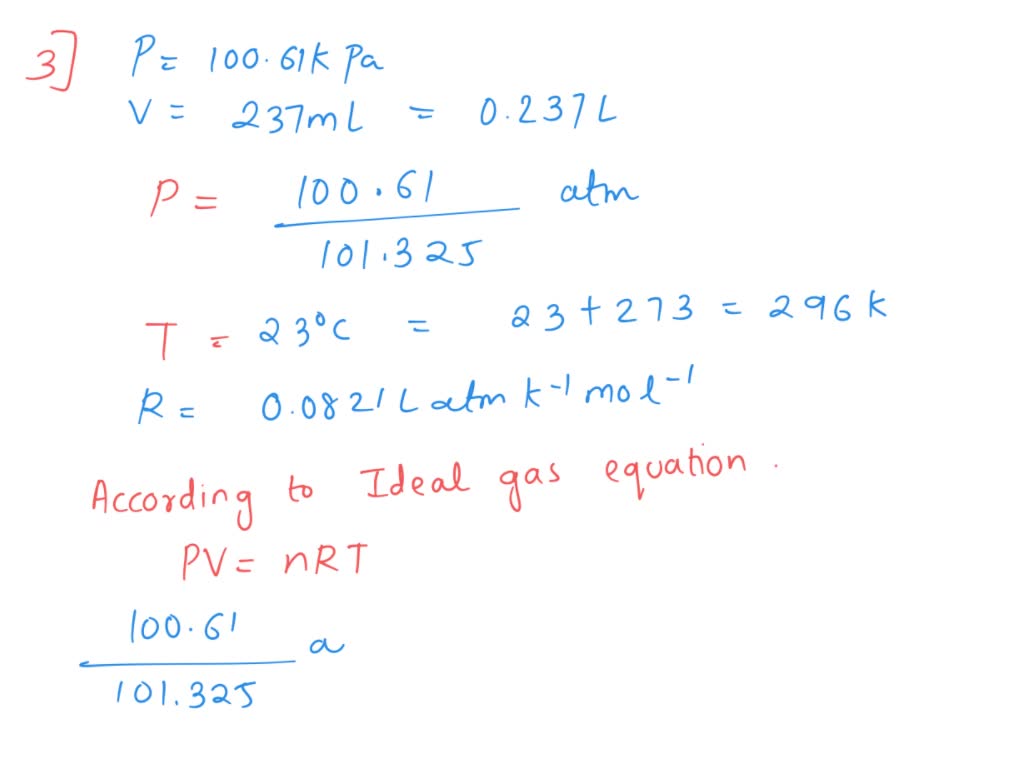 3] P = 100.61k Pa
V = 237mL = 0.237L
P = 100.61 atm
101.325
T = 23°C = 23 + 273 = 296k
R = 0.0821 L atm k-1 mol-1
According to Ideal gas equation.
PV = nRT
100.61 a
101.325